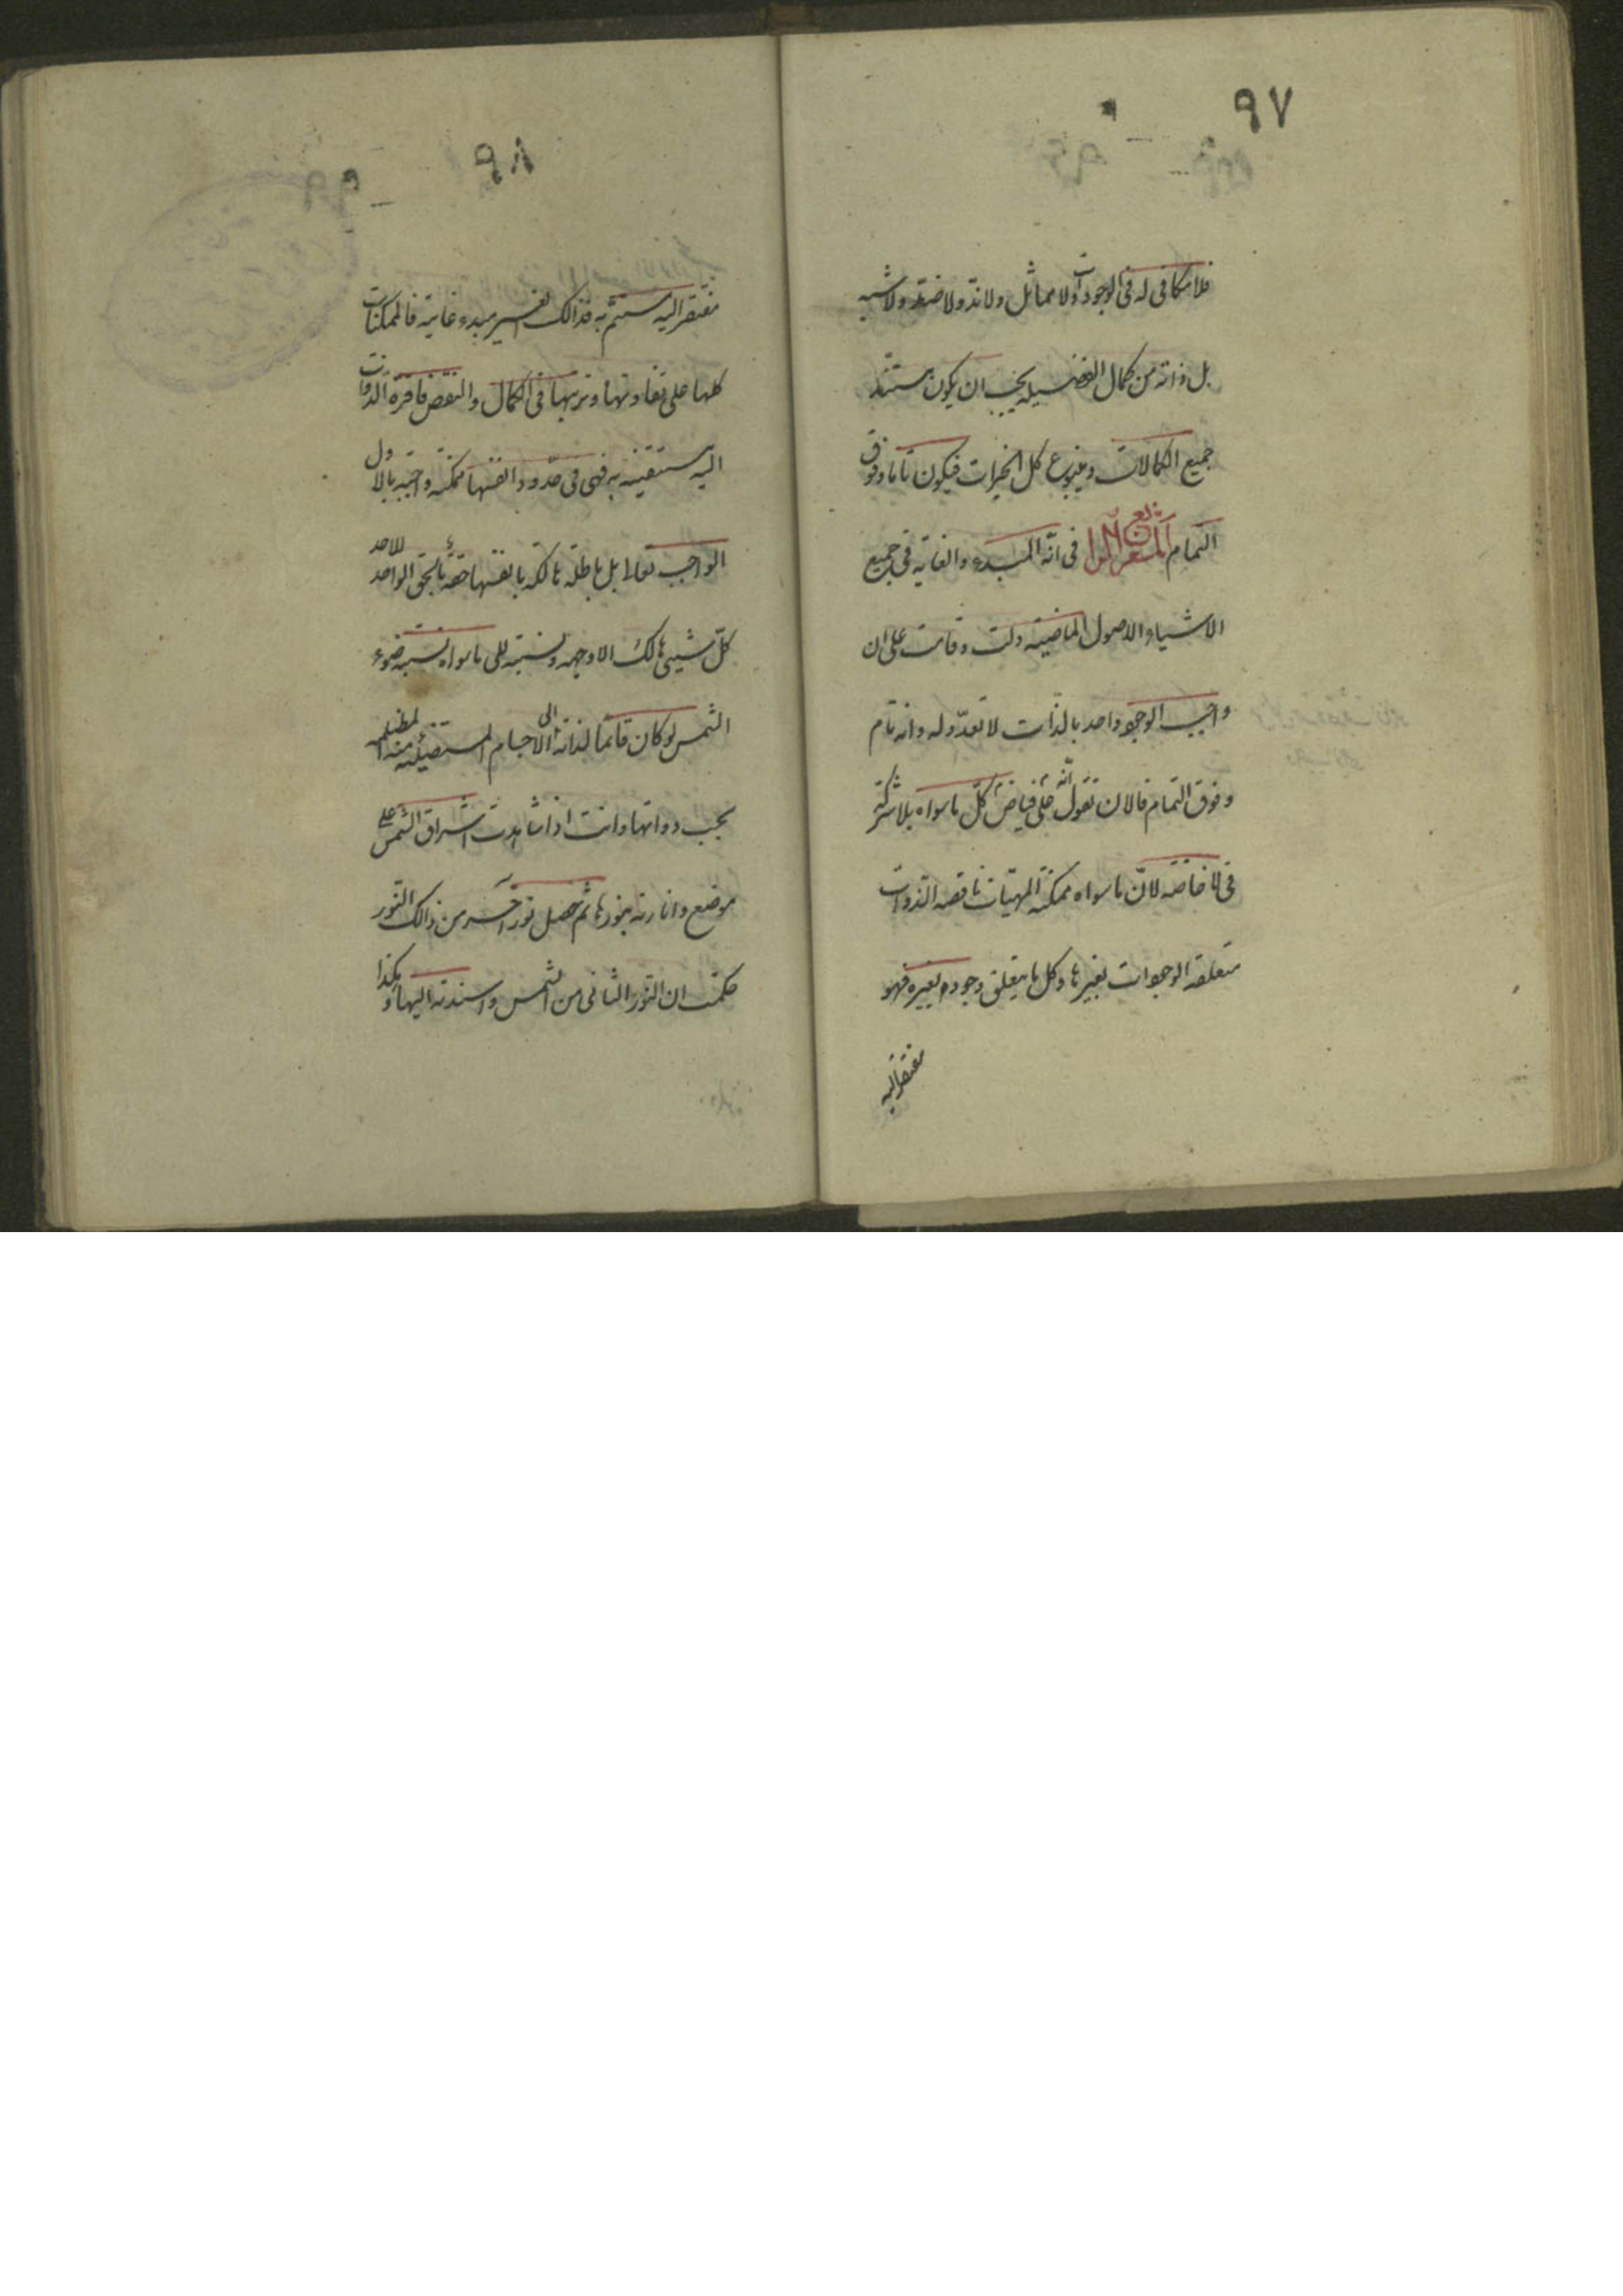 ٩٧
فلا مكافى له فى الوجودات ولا مماثل ولا ندّ ولا ضدّ ولا شبيه
بل ذاته من كمال الفضيله يجب ان يكون مستند
جميع الكمالات وينبوع كل الخيرات فيكون تاما وفوق
التمام المشعر الرابع فى انّه المبدء والغايه فى جميع
الاشياء الاصول الماضيه دلت وقامت على ان
واجب الوجود واحد بالذات لا تعدّد له وانه تام
وفوق التمام فالان نقول انّه فياض كلّ ما سواه بلا شركة
فى الافاضه لانّ ما سواه ممكنة المهيّات ناقصه الذوات
متعلقه الوجودات بغيرها وكل ما يتعلق وجوده بغيره فهو
مفتقر اليه
٩٨
مفتقر اليه مستتم به فذالك الغير مبدء غايته فالممكنات
كلها على تفاوتها وترتبها فى الكمال والنقص فاقرة الذوات
اليه مستغنيه به فهى فى حدود انفسها ممكنه واجبه بالاول
الواجب تعالا بل باطلة هالكه بانفسها حقه بالحق الواحد الاحد
كلّ شيئى هالك الا وجهه ونسبته الى ما سواه نسبه ضوء
الشمس لو كان قائما لذاته الى الاجسام المستضيئه منه المظلمه
بحسب ذواتها وانت اذا شاهدت اشراق الشمس على
موضع وانارته بنورها ثم حصل نور آخر من ذالك النور
حكمت ان النور الثانى من الشمس واسندته اليها وهكذا